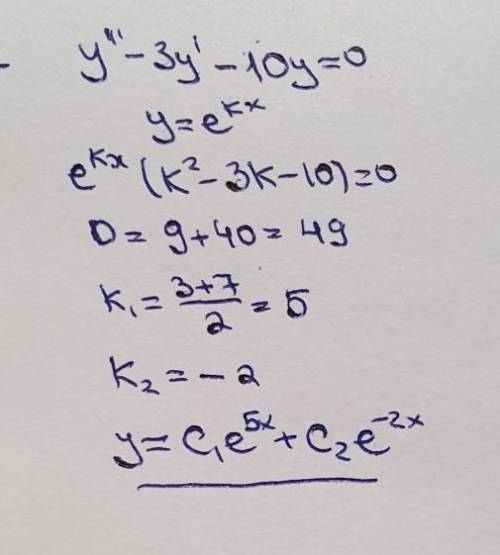 y'' - 3y' - 10y = 0
y = e^{kx}
e^{kx} (k² - 3k - 10) = 0
D = 9 + 40 = 49
k₁ = \frac{3+7}{2} = 5
k₂ = - 2
y = C₁e^{5x} + C₂e^{-2x}